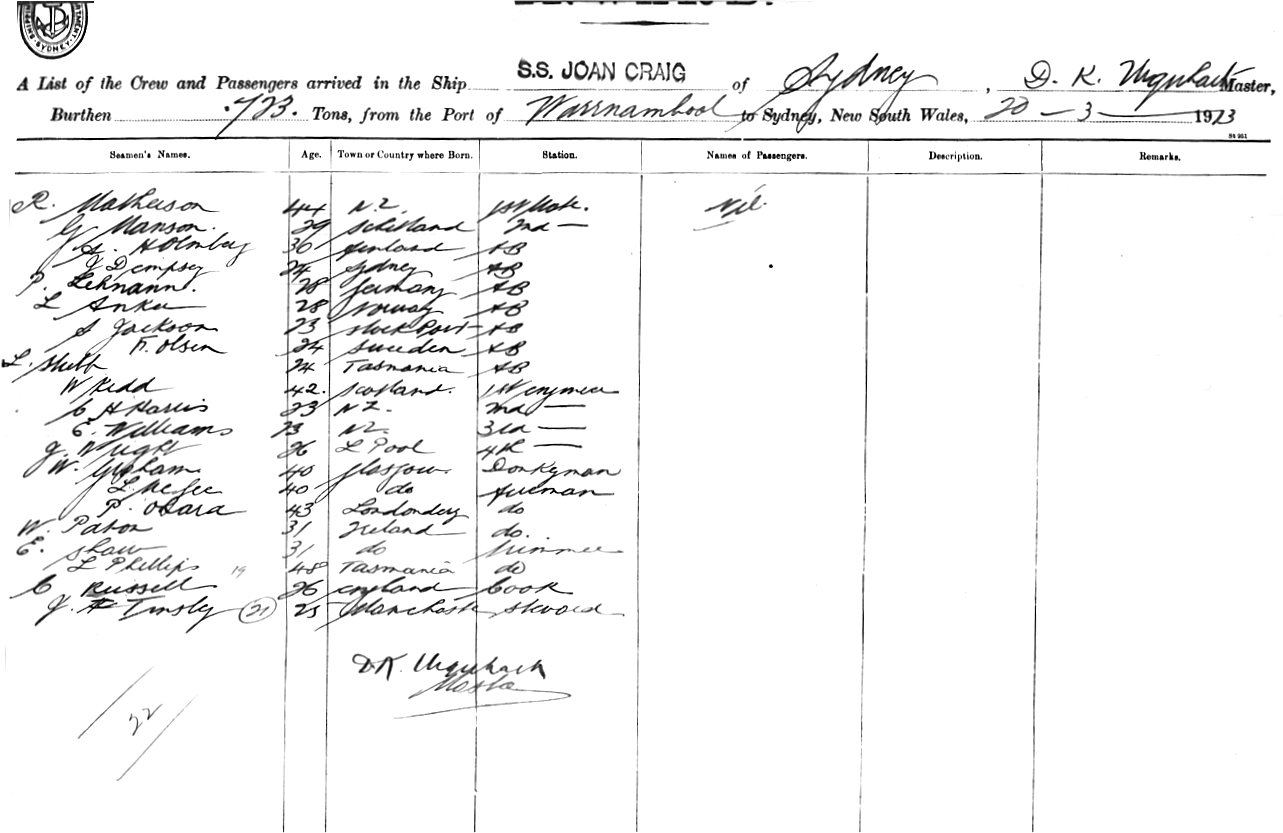 SYDNEY
A List of the Crew and Passengers arrived in the Ship S.S. JOAN CRAIG of Sydney, D. K. Urquhart Master,
Burthen 723. Tons, from the Port of Warrnambool to Sydney, New South Wales, 20-3-1913
Seamen's Names. Age. Town or Country where Born. Station. Names of Passengers. Description. Remarks.
R. Matheson 44 N.Z. 1st Mate. Nil.
G Manson. 29 2nd —
Holmberg 36 Finland AB
J Dempsey 24 Sydney AB
P. Lehmann. 28 Germany AB
L Anker 28 Norway AB
S Jackson 23 Stock Port AB
F. Olsen 24 Sweden AB
L. 24 Tasmania AB
W Kidd 42. Scotland. 1st engineer
C H Harris 23 N Z. 2nd —
E. Williams 23 N Z. 3rd —
J. Wright 26 L Pool 4th —
W. Graham 40 Glasgow Donkyman
L. McGee 40 do fireman
P. OHara 43 Londondery do
W. Paton 31 Ireland do.
E. Shaw 31 do trimmer
L Phillips 19 48 Tasmania do
C Russell 26 England Cook
J Tinsly 21 25 Manchester Steward
D.K. Urquhart
Master
22